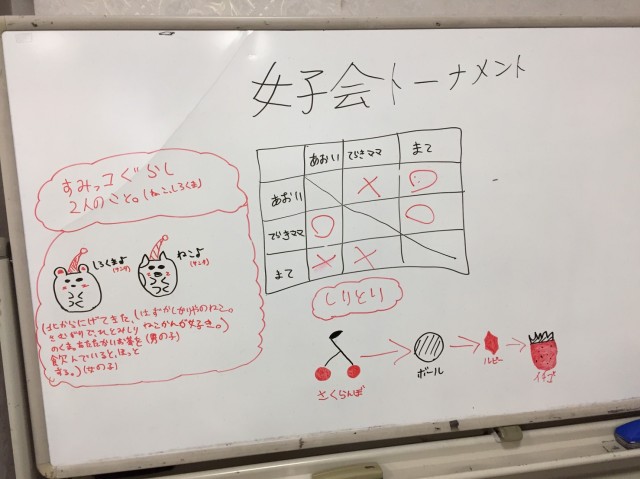 女子会トーナメント
あおい できママ まて
あおい × ○
できママ ○ ○
まて × ×
すみっコぐらし
2人のこと。(ねこ、しろくま)
しろくまよ
(サンタ)
ねこよ
(サンタ)
(北からにげてきた、
さむがりで、ひとみしり
のくま。あたたかいお茶を
飲んでいると、ほっと
する。)(女の子)
(はずかしがりやのねこ。
ねこかんが好き。)
(男の子)
しりとり
さくらんぼ
ボール
ルビー
イチゴ